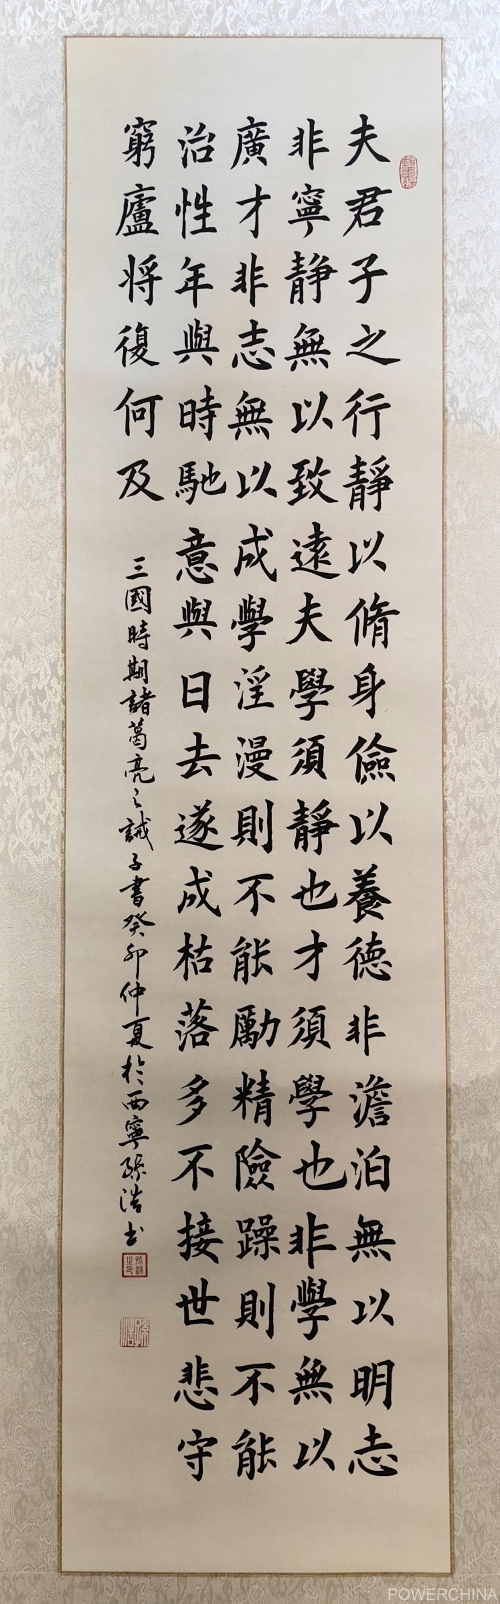 夫君子之行靜以脩身儉以養德非澹泊無以明志
非寧靜無以致遠夫學須靜也才須學也非學無以
廣才非志無以成學淫漫則不能勵精險躁則不能
治性年與時馳意與日去遂成枯落多不接世悲守
窮廬将復何及
三國時期諸葛亮之誡子書癸卯仲夏於西寧孫浩书
POWERCHINA